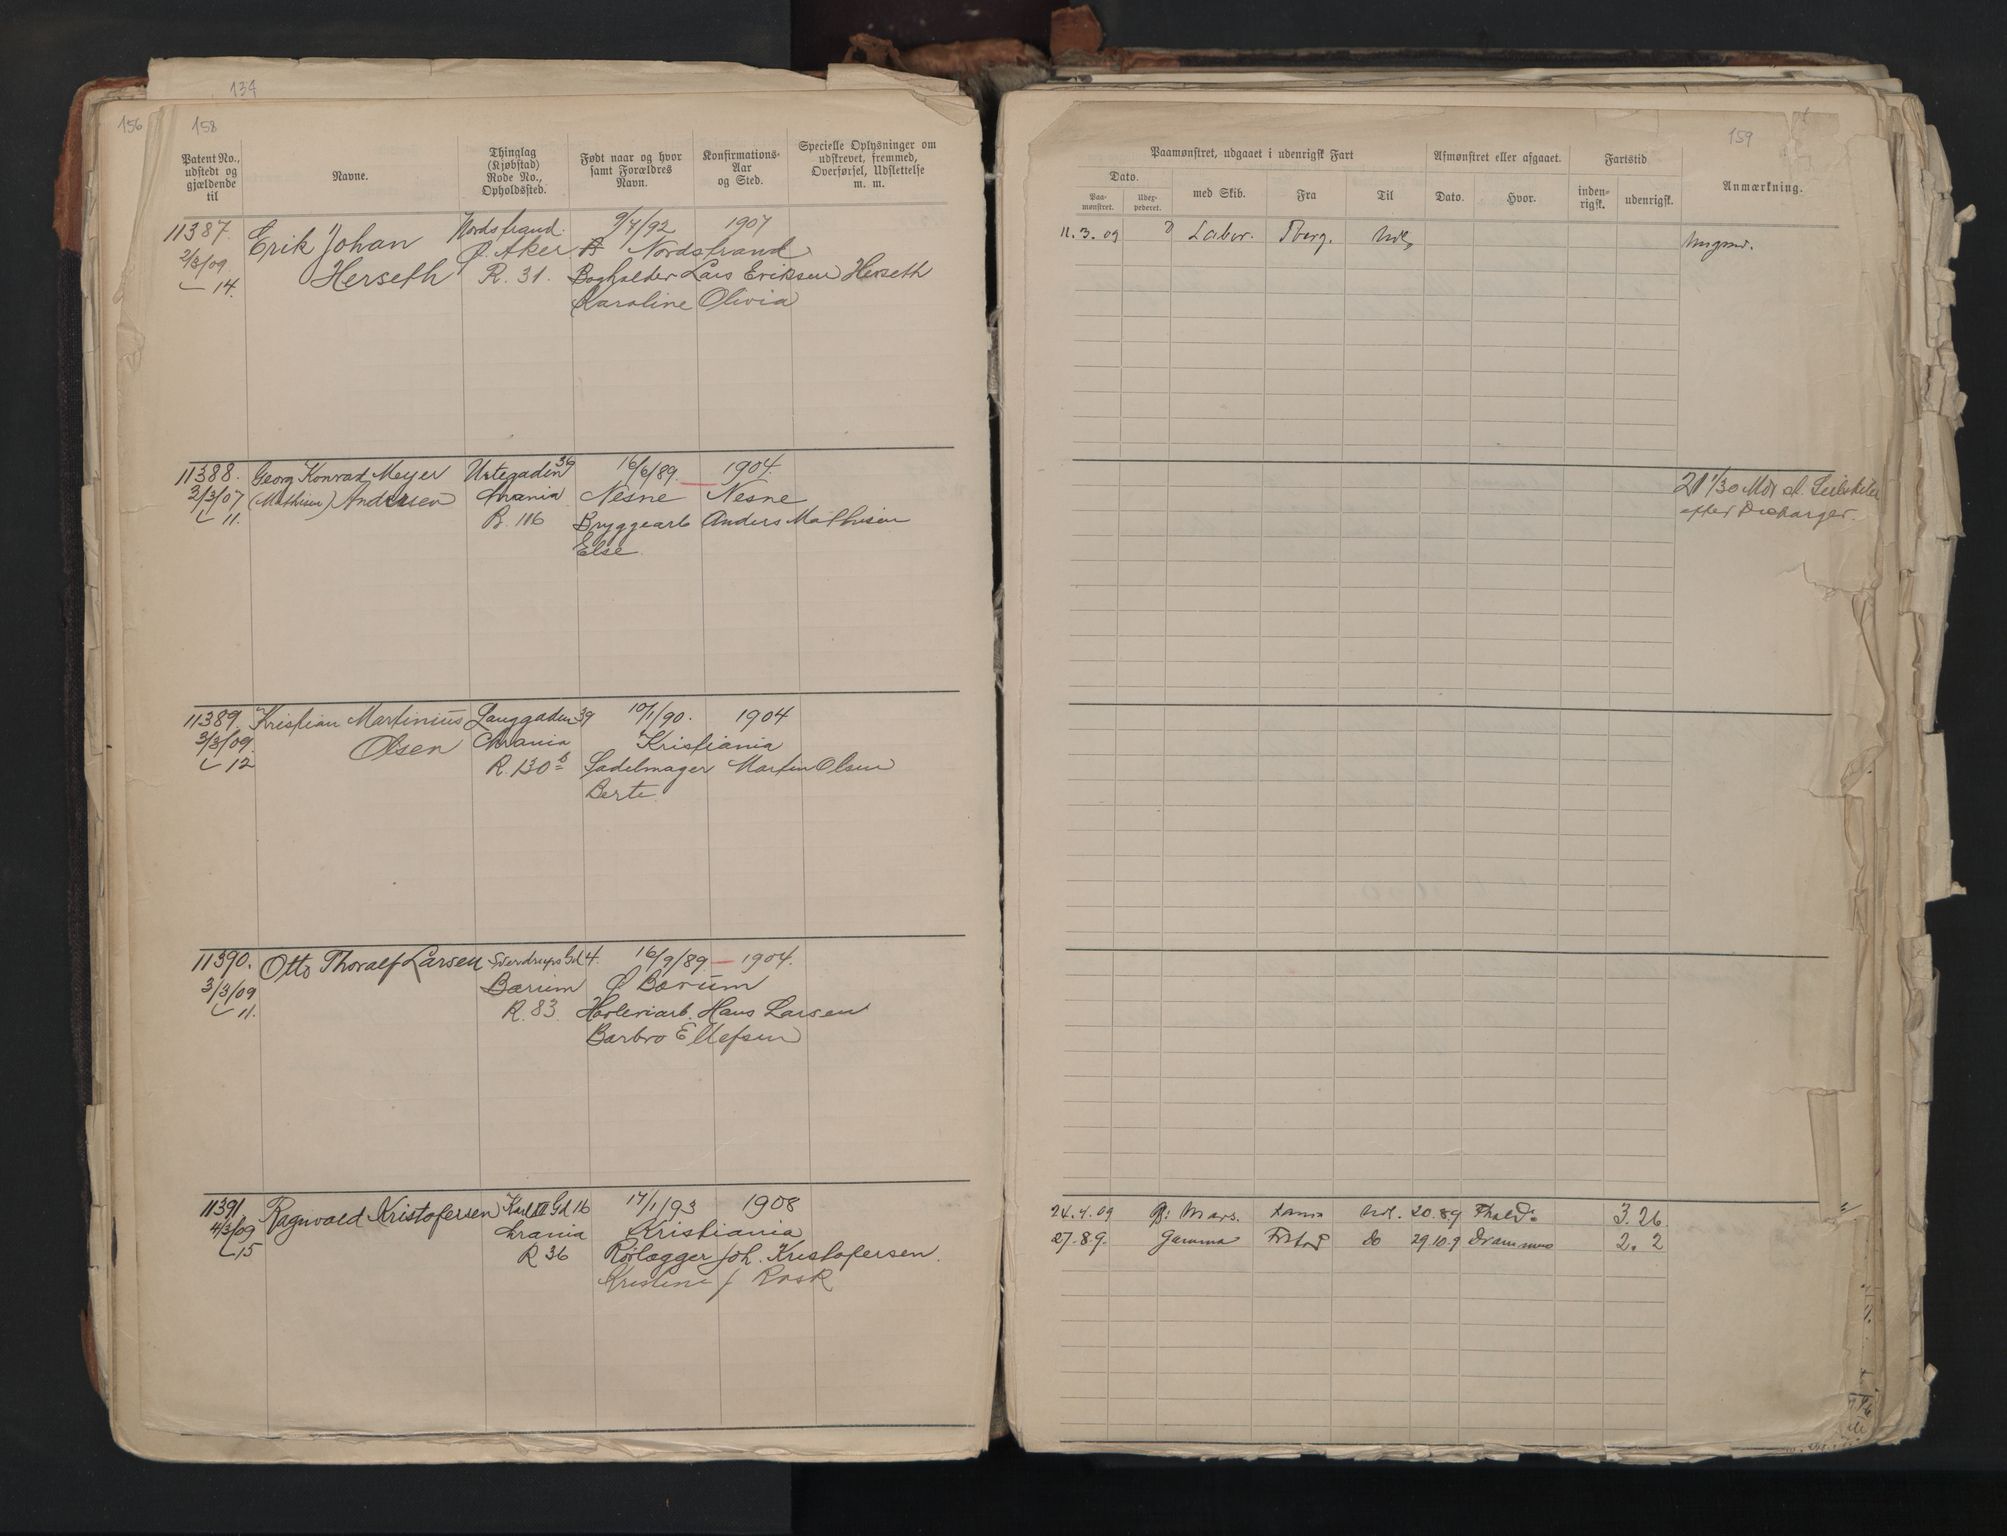 134
156
158
Patent No., udstedt og gjældende til
Navne.
Thinglag (Kjøbstad) Rode No., Opholdssted.
Født naar og hvor samt Forældres Navn.
Konfirmations-Aar og Sted.
Specielle Oplysninger om udskrevet, fremmed, Overførsel, Udslettelse m. m.
11387. Erik Johan Nordstrand. 9/7/92 1907
2/3/09 Ø. Aker Nordstrand
14. Herseth R. 31. Bogholder Lars Eriksen Herseth
Karoline Olivia
11388. Georg Konrad Meyer Urtegaden 39 16/6/89. 1904.
2/3/07 (Mathisen) Andersen Nesne Nesne
11. R. 116 Bryggearb Anders Mathisen
Else.
11389. Kristian Martinius Langgaden 39 10/1/90. 1904
3/3/09. Olsen Chrania Kristiania
12 R. 130 b Sadelmager Martin Olsen
Berte.
11390. Otto Thoralf Larsen Sverdrups Gd 4. 16/9/89 — 1904.
3/3/09 Bærum Ø Bærum
11. R. 83. Høvleriarb. Hans Larsen
Barbro Ellefsen
11391 Ragnvald Kristofersen Karl XII Gd 16 17/1/93 1908
4/3/09 Kristiania
15 R 36 Rørlægger Joh. Kristofersen.
Kristine f Rask
159
Paamønstret, udgaaet i udenrigsk Fart
Afmønstret eller afgaaet.
Fartstid
Anmærkning.
Dato.
Paa-mønstret.
Udex-pederet.
med Skib.
Fra
Til
Dato.
Hvor.
inden-rigsk.
udenrigsk.
11. 3. 09 D Labor. Tberg. Udl.
21 1/30 Mdr
efter Decharger.
24.4.09 B: Mars. Udl. 20.8.9 3. 26.
27.8.9. Gamma do 29.10.9 Drammen 2. 2